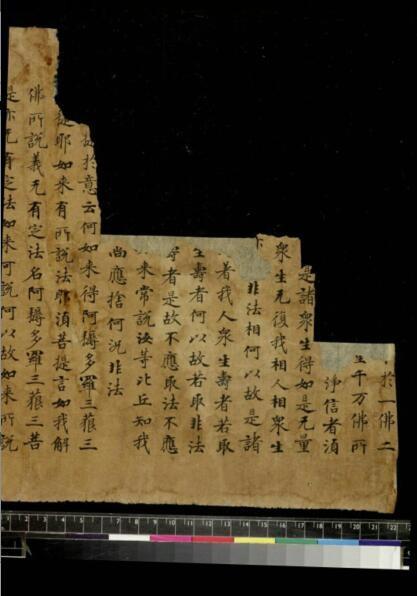 於一佛二
千万佛所
淨信者須
是諸衆生得如是无量
衆生无復我相人相衆生
非法相何以故是諸
著我人衆生壽者若取
生壽者何以故若取非法
壽者是故不應取法不應
来常說汝等比丘知我
尚應捨何況非法
於意云何如来得阿耨多羅三藐三
提耶如来有所說法耶須菩提言如我解
佛所說義无有定法名阿耨多羅三藐三菩
是亦无有定法如来可說何以故如来所說
0 1 2 3 4 5 6 7 8 9 10 11 12 13 14 15 16 17 18 19 20 21 22